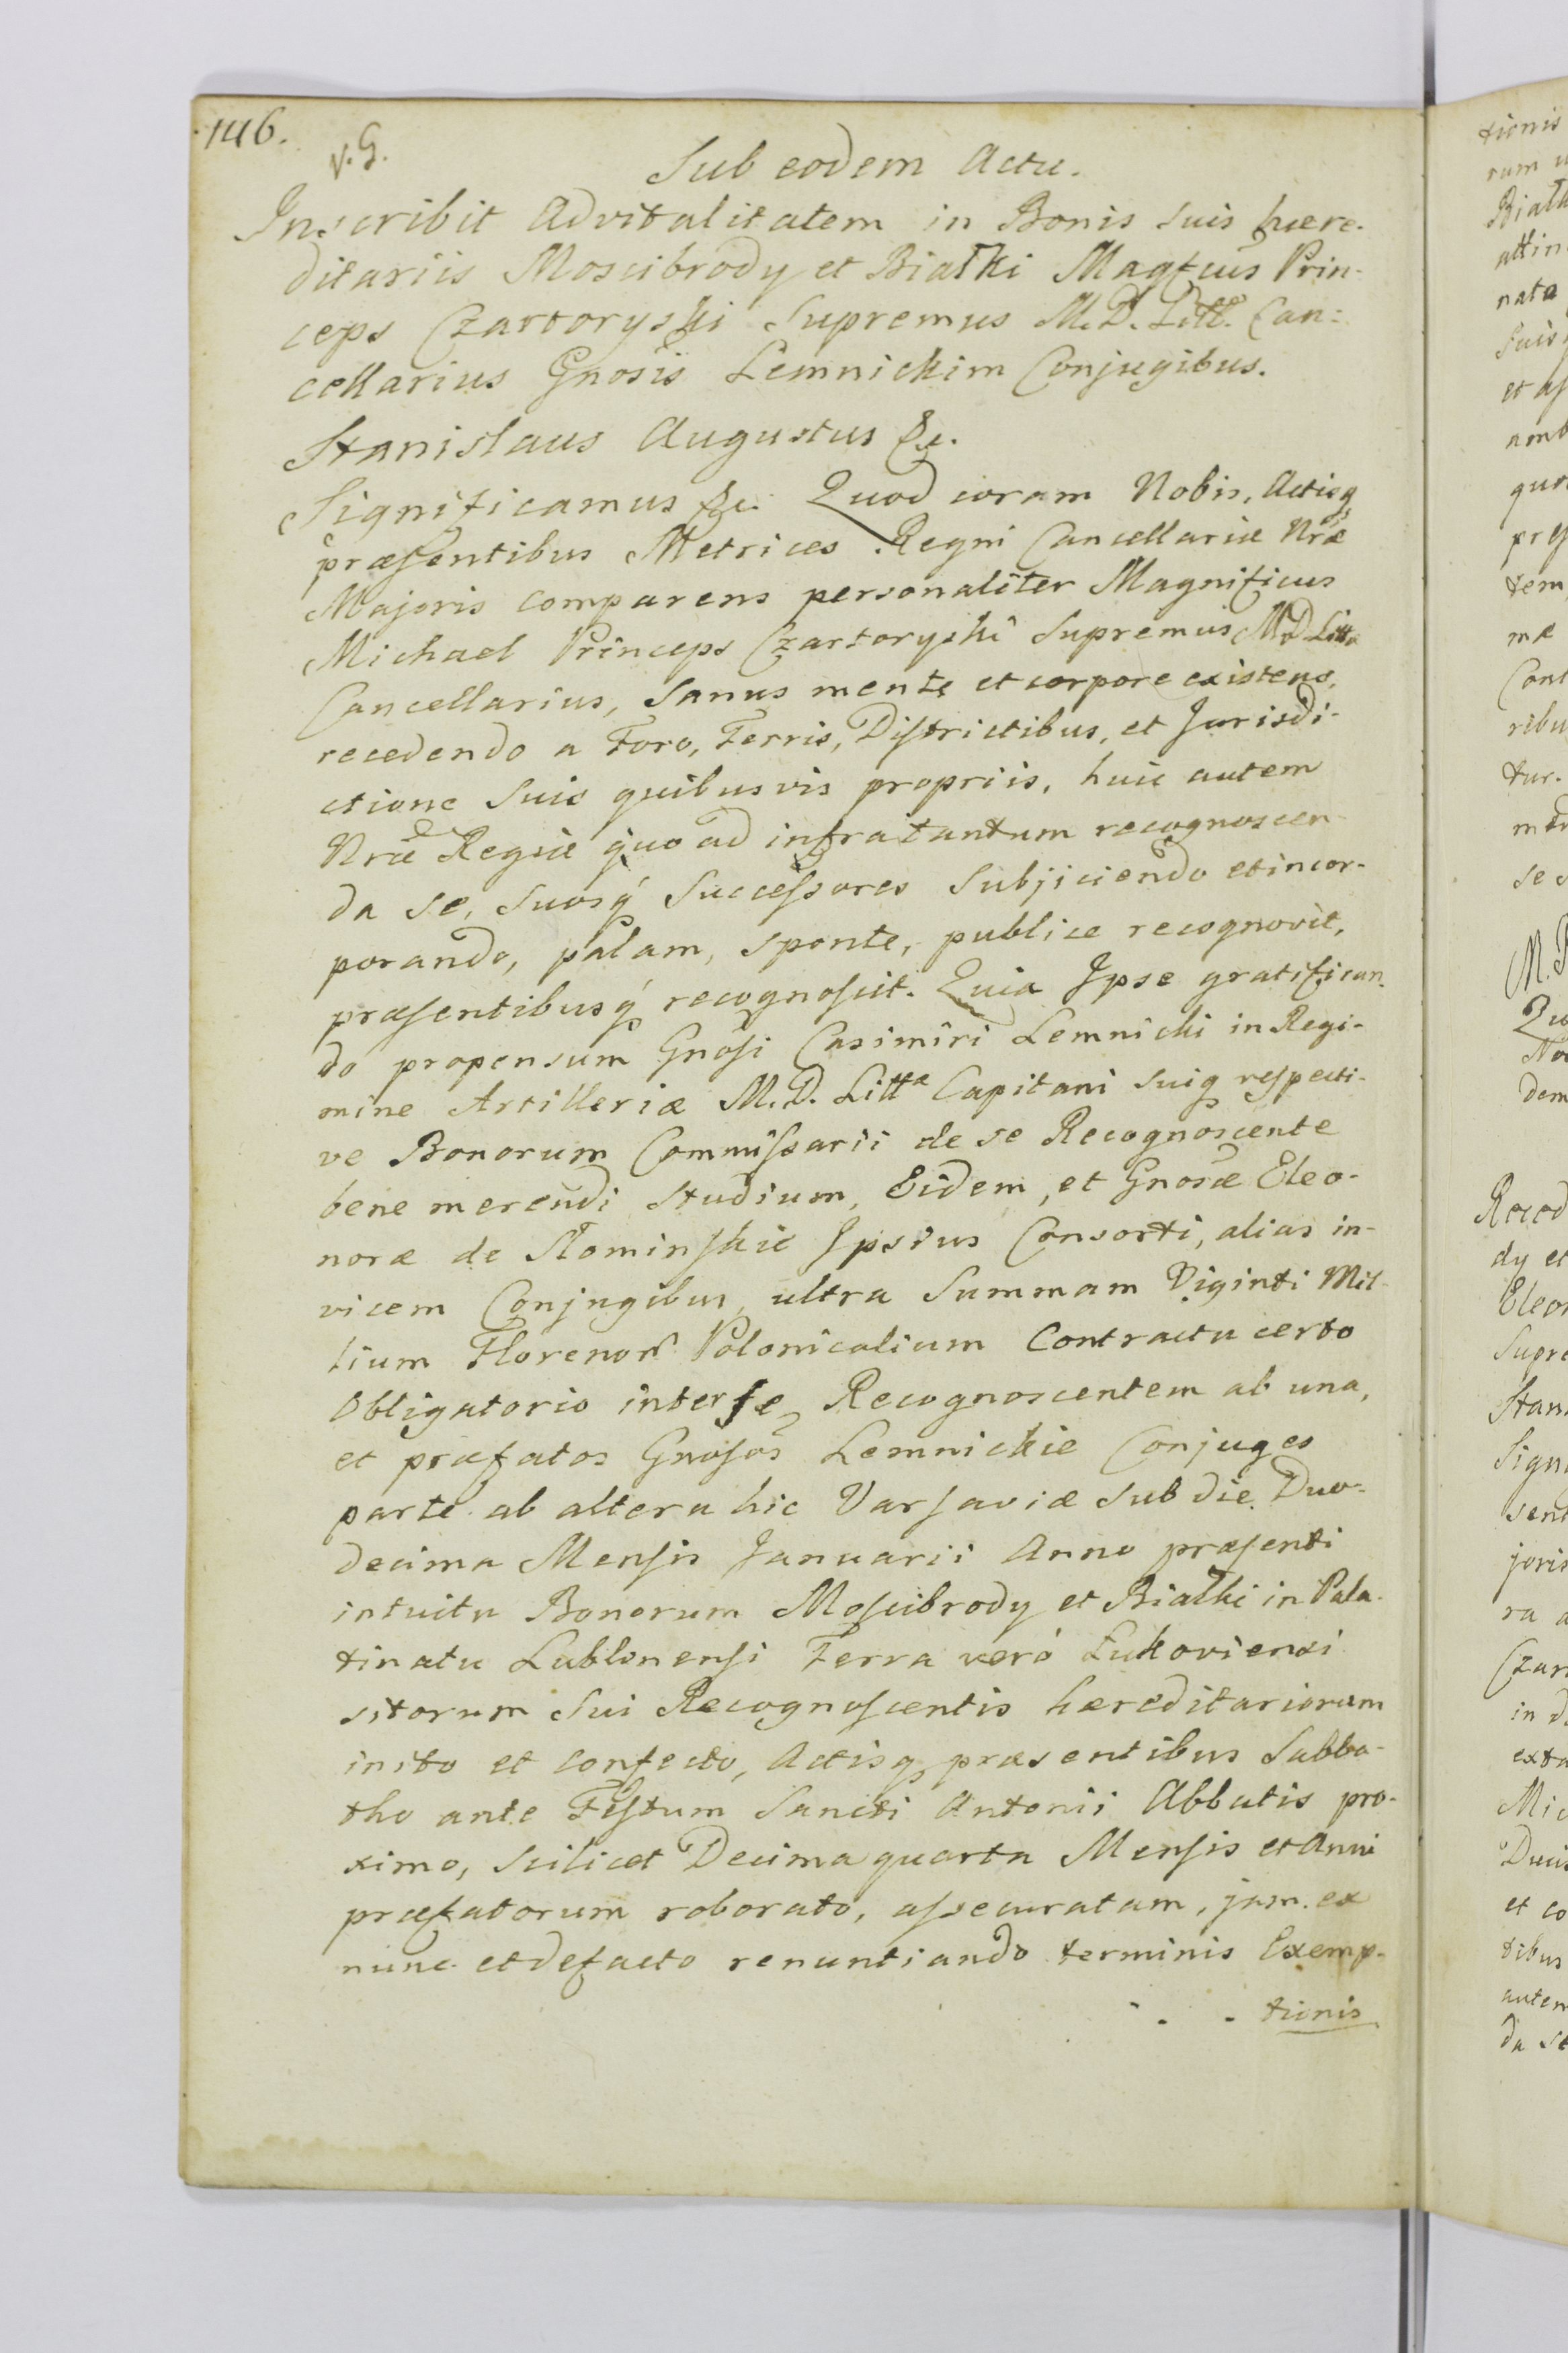 146.
v. G.
Sub eodem Actu.
Inscribit Advitalitatem in Bonis suis hære-
ditariis Moscibrody et Białki Magfcus Prin-
ceps Czartoryski Supremus M. D. Litt. Can:
cellarius Gnosis Lemnickim Conjugibus.
Stanislaus Augustus &c.
Significamus &c. Quod coram Nobis, Actisq
præsentibus Metrices Regni Cancellariæ Nræ
Majoris comparens personaliter Magnificus
Michael Princeps Czartoryski Supremus M D Litt.
Cancellarius, Sanus mente et corpore existens,
recedendo a Foro, Terris, Districtibus, et Jurisdi-
ctione Suis quibusvis propriis, huic autem
Nræ Regiæ quo ad infratantum recognoscen-
da se, Suosq Successores Subjiciendo et incor-
porando, palam, sponte, publice recognovit,
præsentibusq recognoscit. Quia Ipse gratifican-
do propensum Gnosi Casimiri Lemnicki in Regi-
mine Artilleriæ M. D. Littæ Capitani Suiq respecti-
ve Bonorum Commissarii de se Recognoscente
bene merendi Studium, Eidem, et Gnosæ Eleo-
noræ de Słominskie Ipsius Consorti, alias in-
vicem Conjugibus, ultra Summam Viginti Mil-
lium Florenor Polonicalium Contractu certo
Obligatorio inter se Recognoscentem ab una,
et præfatos Gnosos Lemnickie Conjuges
parte ab altera hic Varsaviæ Sub die Duo-
decima Mensis Januarii Anno præsenti
intuitu Bonorum Moscibrody et Białki in Pala-
tinatu Lublinensi Terra verò Lukoviensi
sitorum Sui Recognoscentis hæreditariorum
inito et confecto, Actisq præsentibus Sabba-
tho ante Festum Sancti Antonii Abbatis pro-
ximo, Scilicet Decima quarta Mensis et Anni
præfatorum roborato, assecuratam, jam ex
nunc et de facto renuntiando terminis Exemp-
tionis